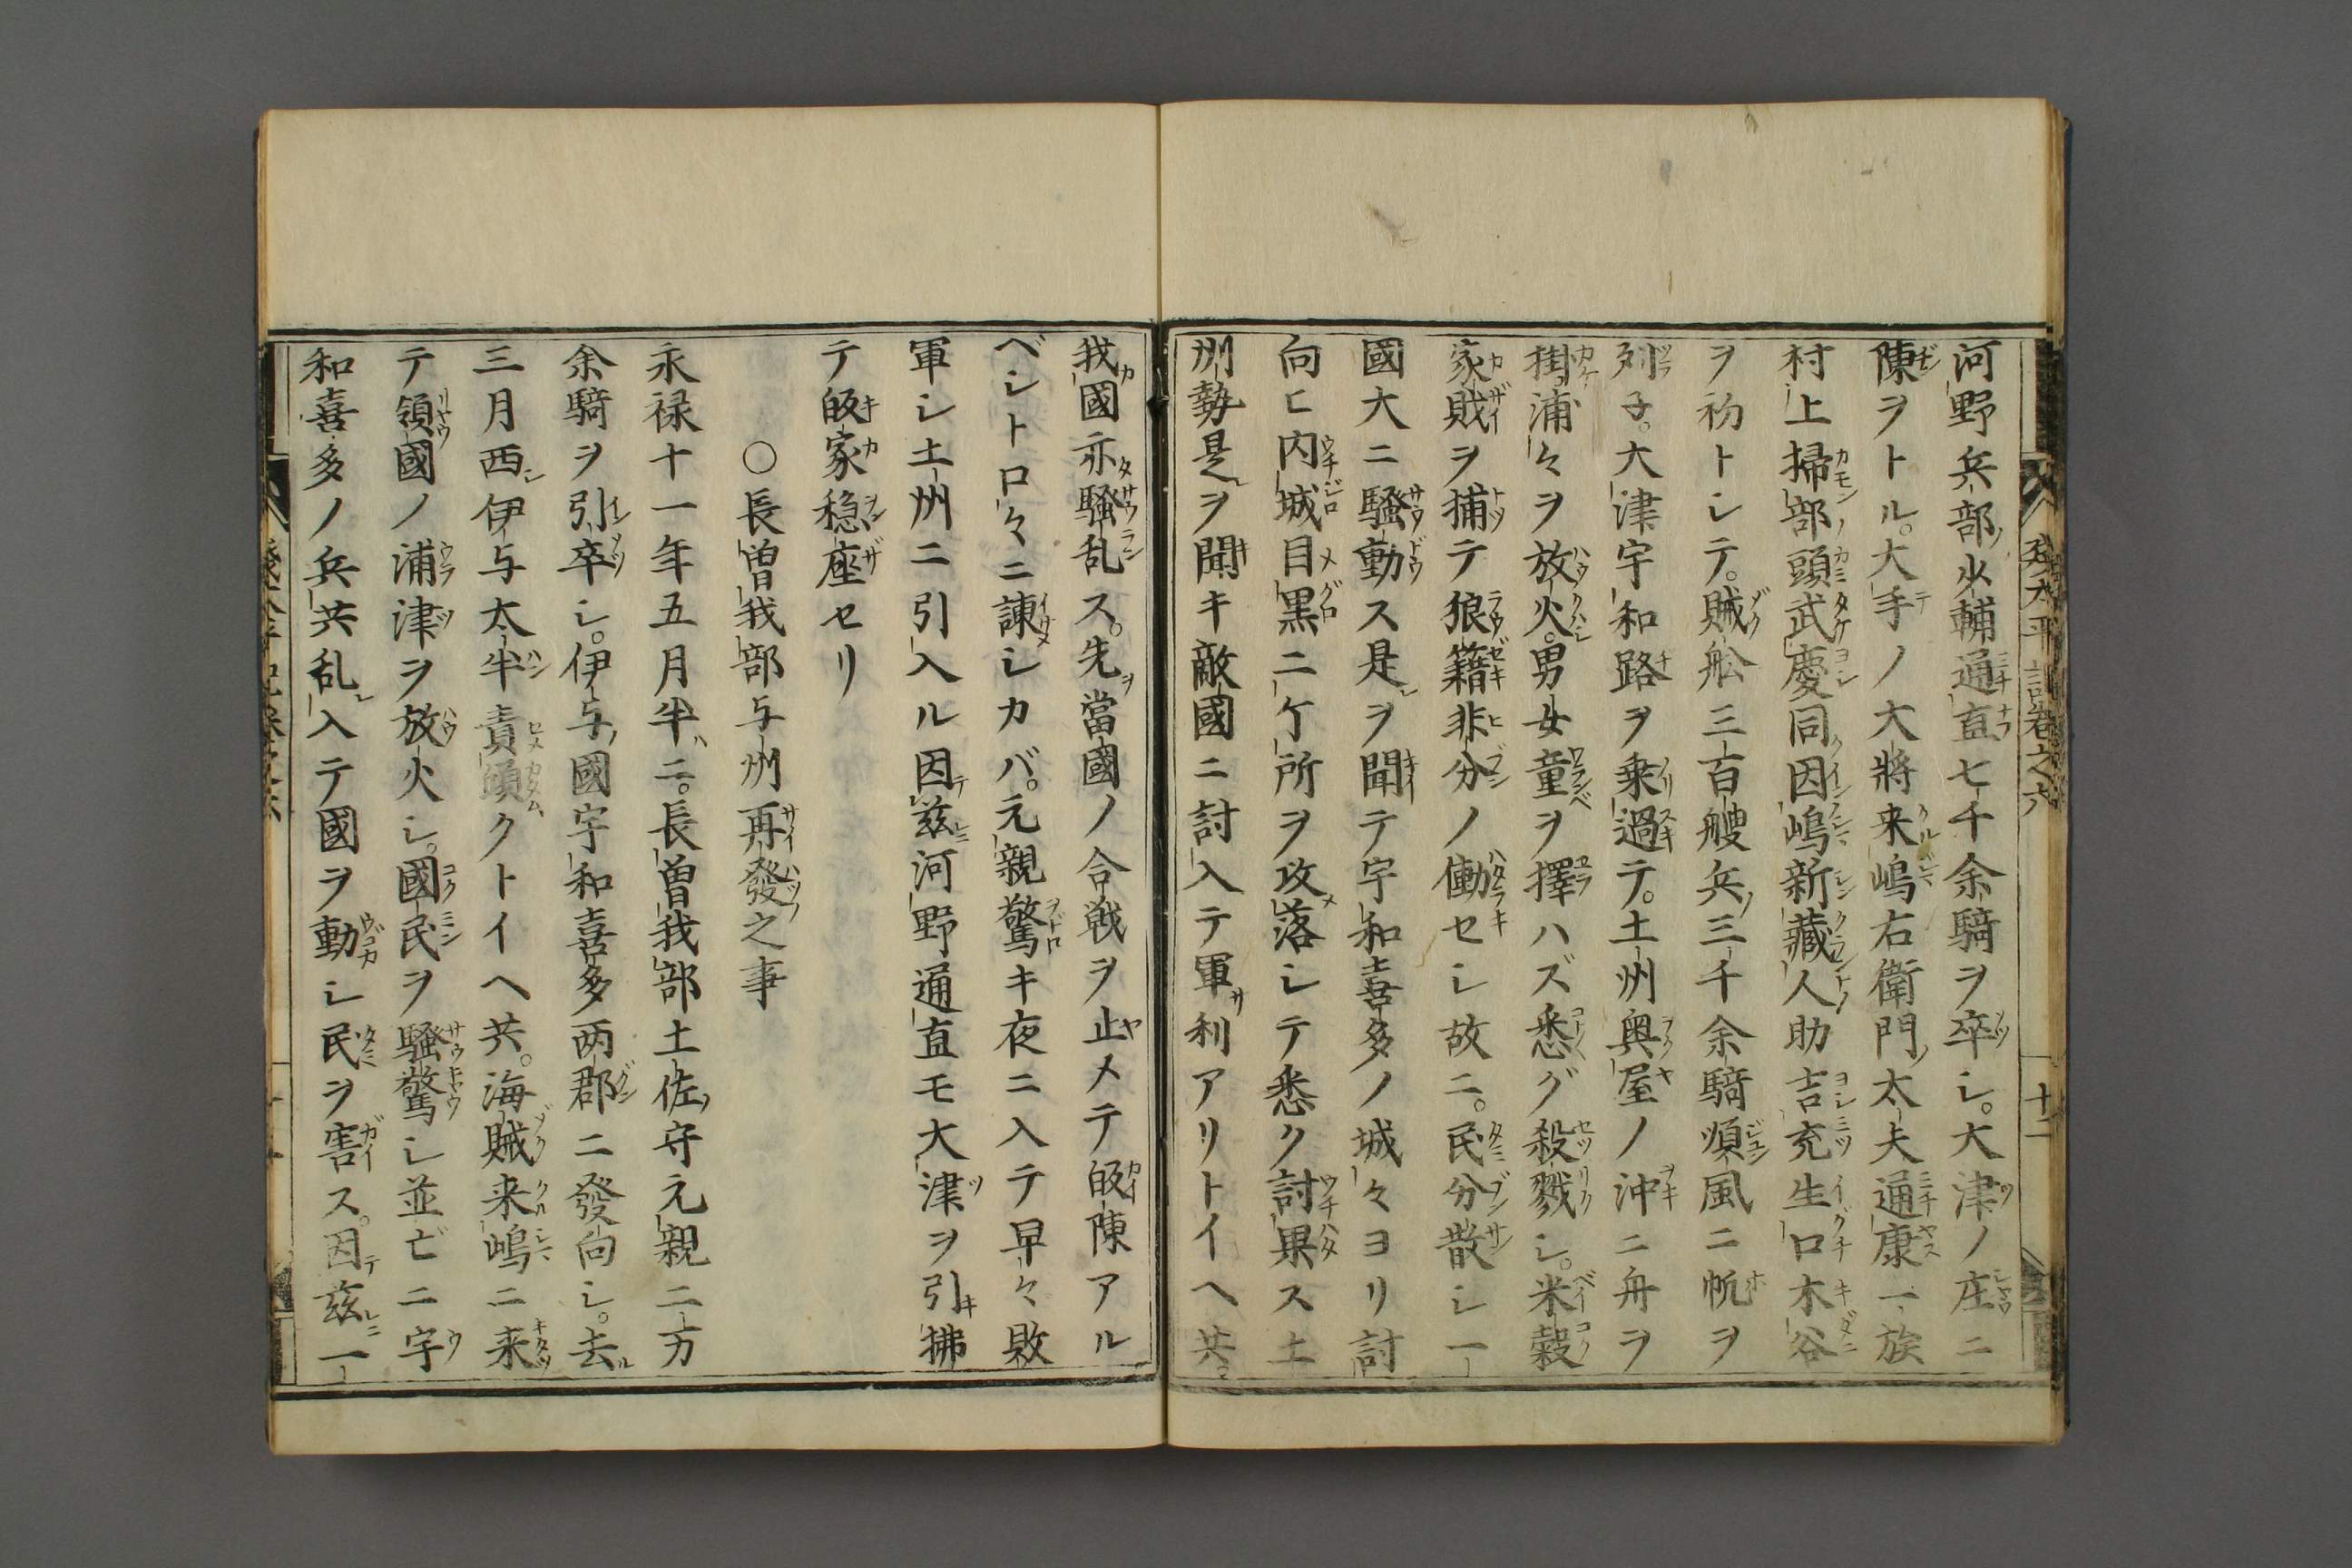 河野兵部少輔通直七千余騎ヲ卒シ。大津ノ庄ニ
陳ヲトル。大手ノ大將来嶋右衛門太夫通康一族
村上掃部頭武慶同因嶋新藏人助吉充生口木谷
ヲ初トシテ。賊舩三百艘兵三千余騎順風ニ帆ヲ
列子。大津宇和路ヲ乗過テ。土州奥屋ノ沖ニ舟ヲ
掛浦々ヲ放火。男女童ヲ擇ハズ悉グ殺戮シ。米穀
家賎ヲ捕テ狼籍非分ノ働セシ故ニ。民分散シ一
國大ニ騒動ス是ヲ聞テ宇和喜多ノ城々ヨリ討
向ヒ内城目黒二ケ所ヲ攻落シテ悉ク討果ス土
州勢是ヲ聞キ敵國ニ討入テ軍利アリトイヘ共。
我國亦騒乱ス。先當國ノ合戦ヲ止メテ皈陳アル
ベシト口々ニ諌シカバ。元親驚キ夜ニ入テ早々敗
軍シ土州ニ引入ル因茲河野通直モ大津ヲ引拂
テ皈家穏座セリ
○長曽我部与州再發之事
永禄十一年五月半ニ。長曽我部土佐守元親二万
余騎ヲ引卒シ。伊与國宇和喜多两郡ニ發向シ。去
三月西伊与太半責頭クトイヘ共。海賊来嶋ニ来
テ領國ノ浦津ヲ放火シ。國民ヲ騒驚シ並ビニ宇
和喜多ノ兵共乱入テ國ヲ動シ民ヲ害ス。因茲一